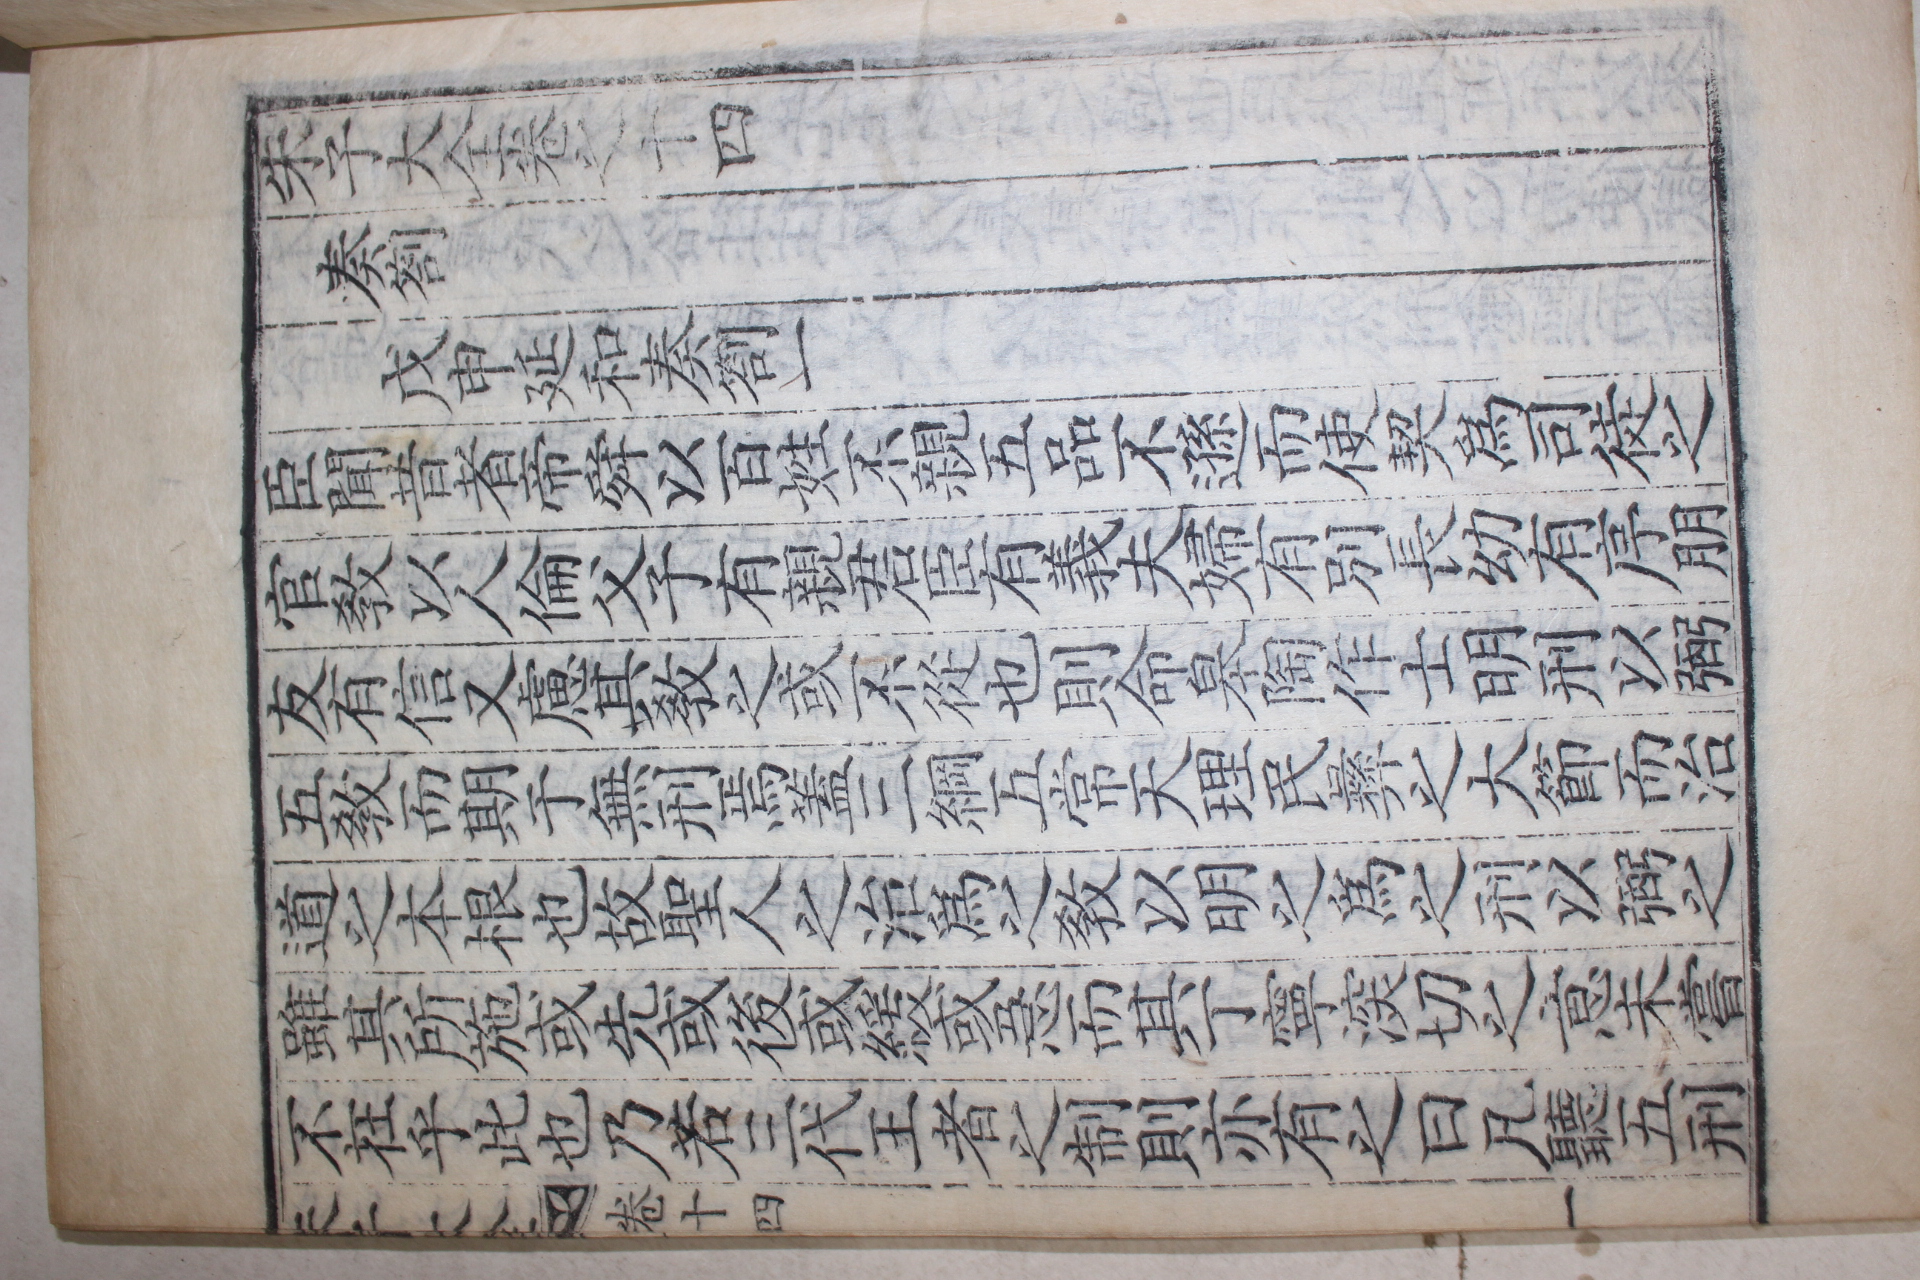 朱子大全卷之十四
奏劄
戊申延和奏劄一
臣聞昔者帝舜以百姓不親五品不遜而使契爲司徒之
官敎以人倫父子有親君臣有義夫婦有別長幼有序朋
友有信又慮其敎之或不從也則命臯陶作士明刑以弼
五敎而期于無刑焉蓋三綱五常天理民彝之大節而治
道之本根也故聖人之治爲之敎以明之爲之刑以弼之
雖其所施或先或後或緩或急而其丁寧深切之意未嘗
不在乎此也乃若三代王者之制則亦有之曰凡聽五刑
朱子大全 卷十四 一